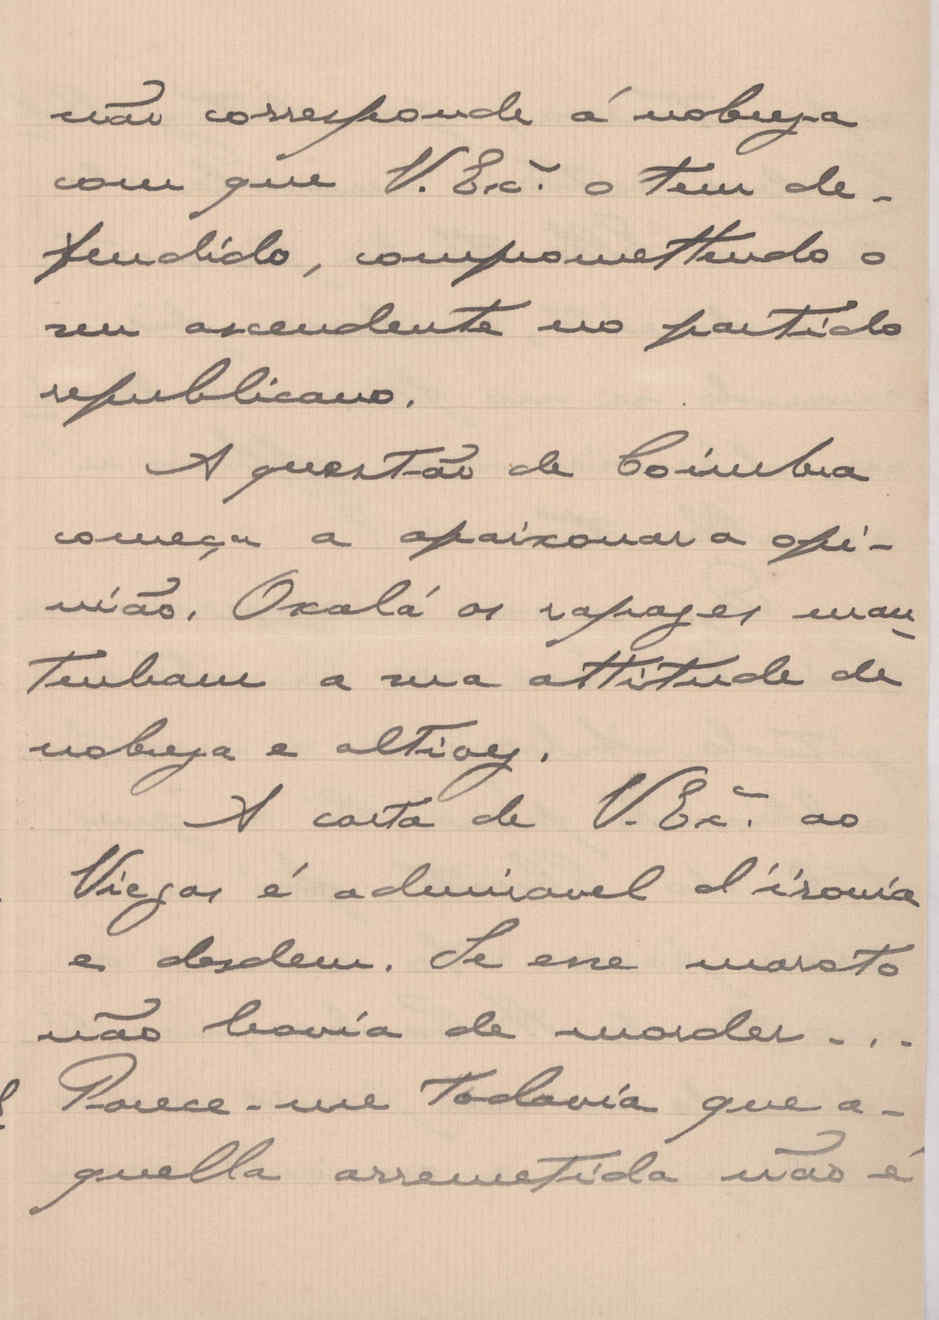 não corresponde á nobreza
com que V. Exc.ª o tem de-
fendido, compromettendo o
seu ascendente no partido
republicano.
A questão de Coimbra
começa a apaixonar a opi-
nião. Oxalá os rapazes man-
tenham a sua attitude de
nobreza e altivez.
A carta de V. Exc.ª ao
Viegas é admiravel d'ironia
e desdem. Se esse maroto
não havia de morder...
Parece-me todavia que a-
quella arremetida não é